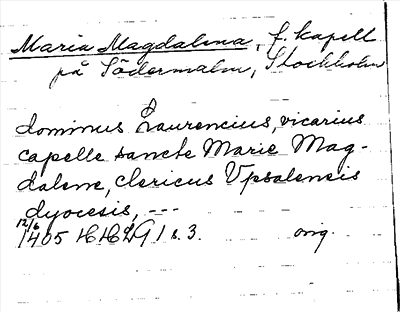 Maria Magdalena, f. kapell
på Södermalm, Stockholm
dominus Laurencius, vicarius
capelle sancte Marie Mag-
dalene, clericus Vpsalensis
dyocesis, ---
12/6
1405 HHLG 1 s. 3. orig.